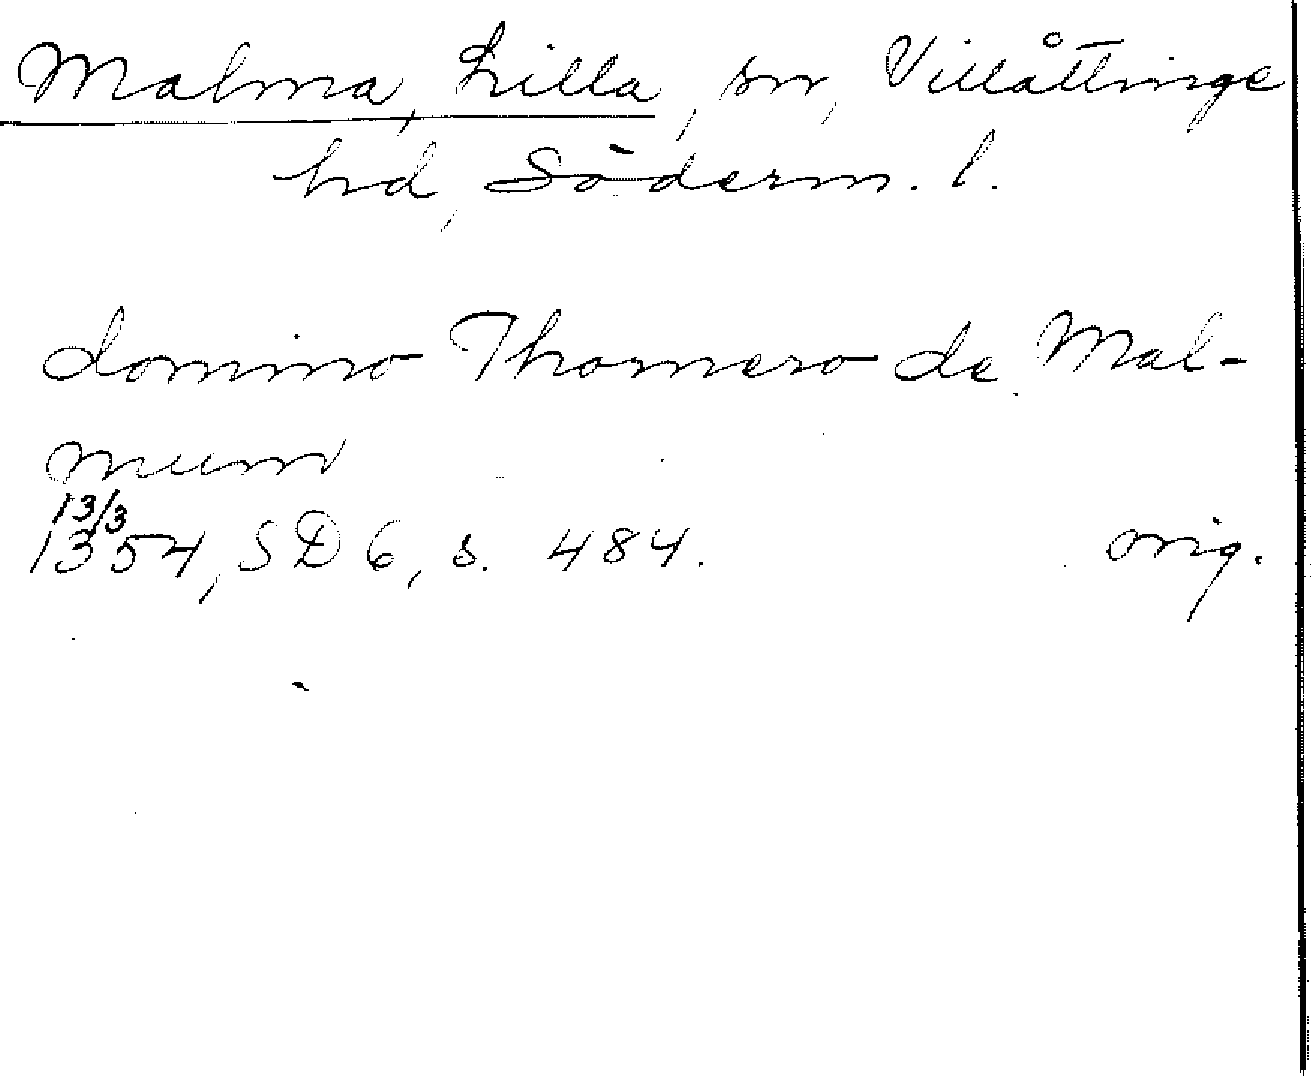 Malma, Lilla, sn, Villåttinge
hd, Söderm. l.
domino Thomero de Mal-
mum
13/3
1354, SD 6, s. 484.
orig.